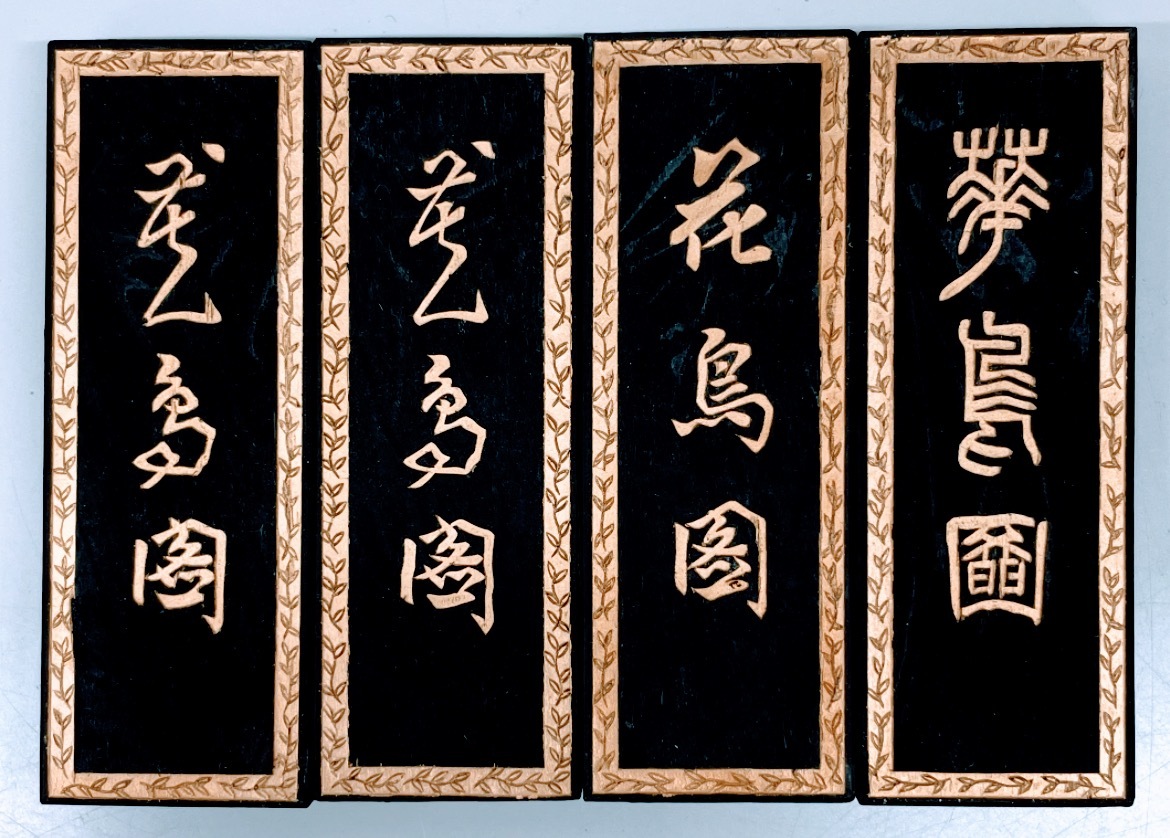 華鳥圖
花鳥圖
花鳥圖
花鳥圖